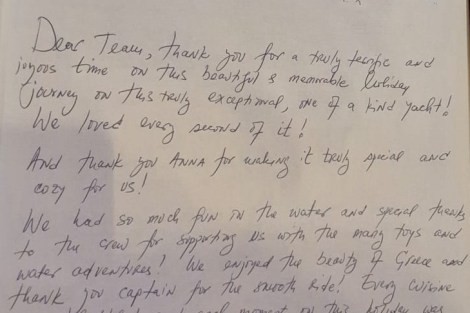 Dear Team, thank you for a truly terrific and
joyous time on this beautiful & memorable holiday
journey on this truly exceptional, one of a kind yacht!
We loved every second of it!
And thank you ANNA for making it truly special and
cozy for us!
We had so much fun in the water and special thanks
to the crew for supporting us with the many toys and
water adventures! We enjoyed the beauty of Greece and
thank you captain for the smooth ride! Every cuisine
moment on this holiday was